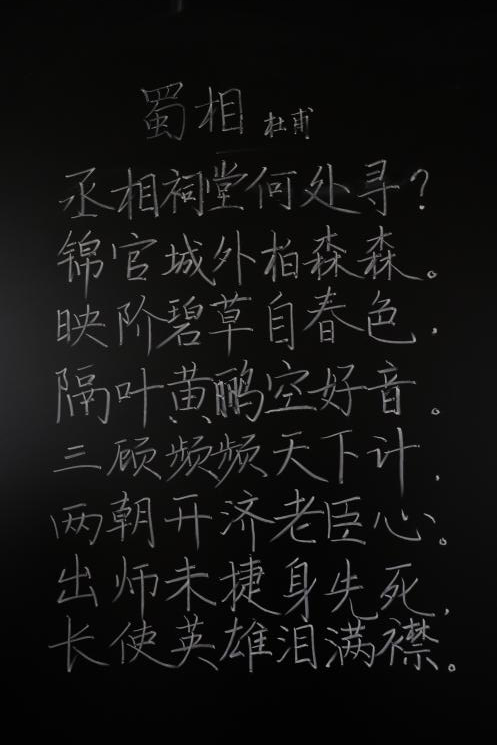 蜀相 杜甫
丞相祠堂何处寻？
锦官城外柏森森。
映阶碧草自春色，
隔叶黄鹂空好音。
三顾频频天下计，
两朝开济老臣心。
出师未捷身先死，
长使英雄泪满襟。